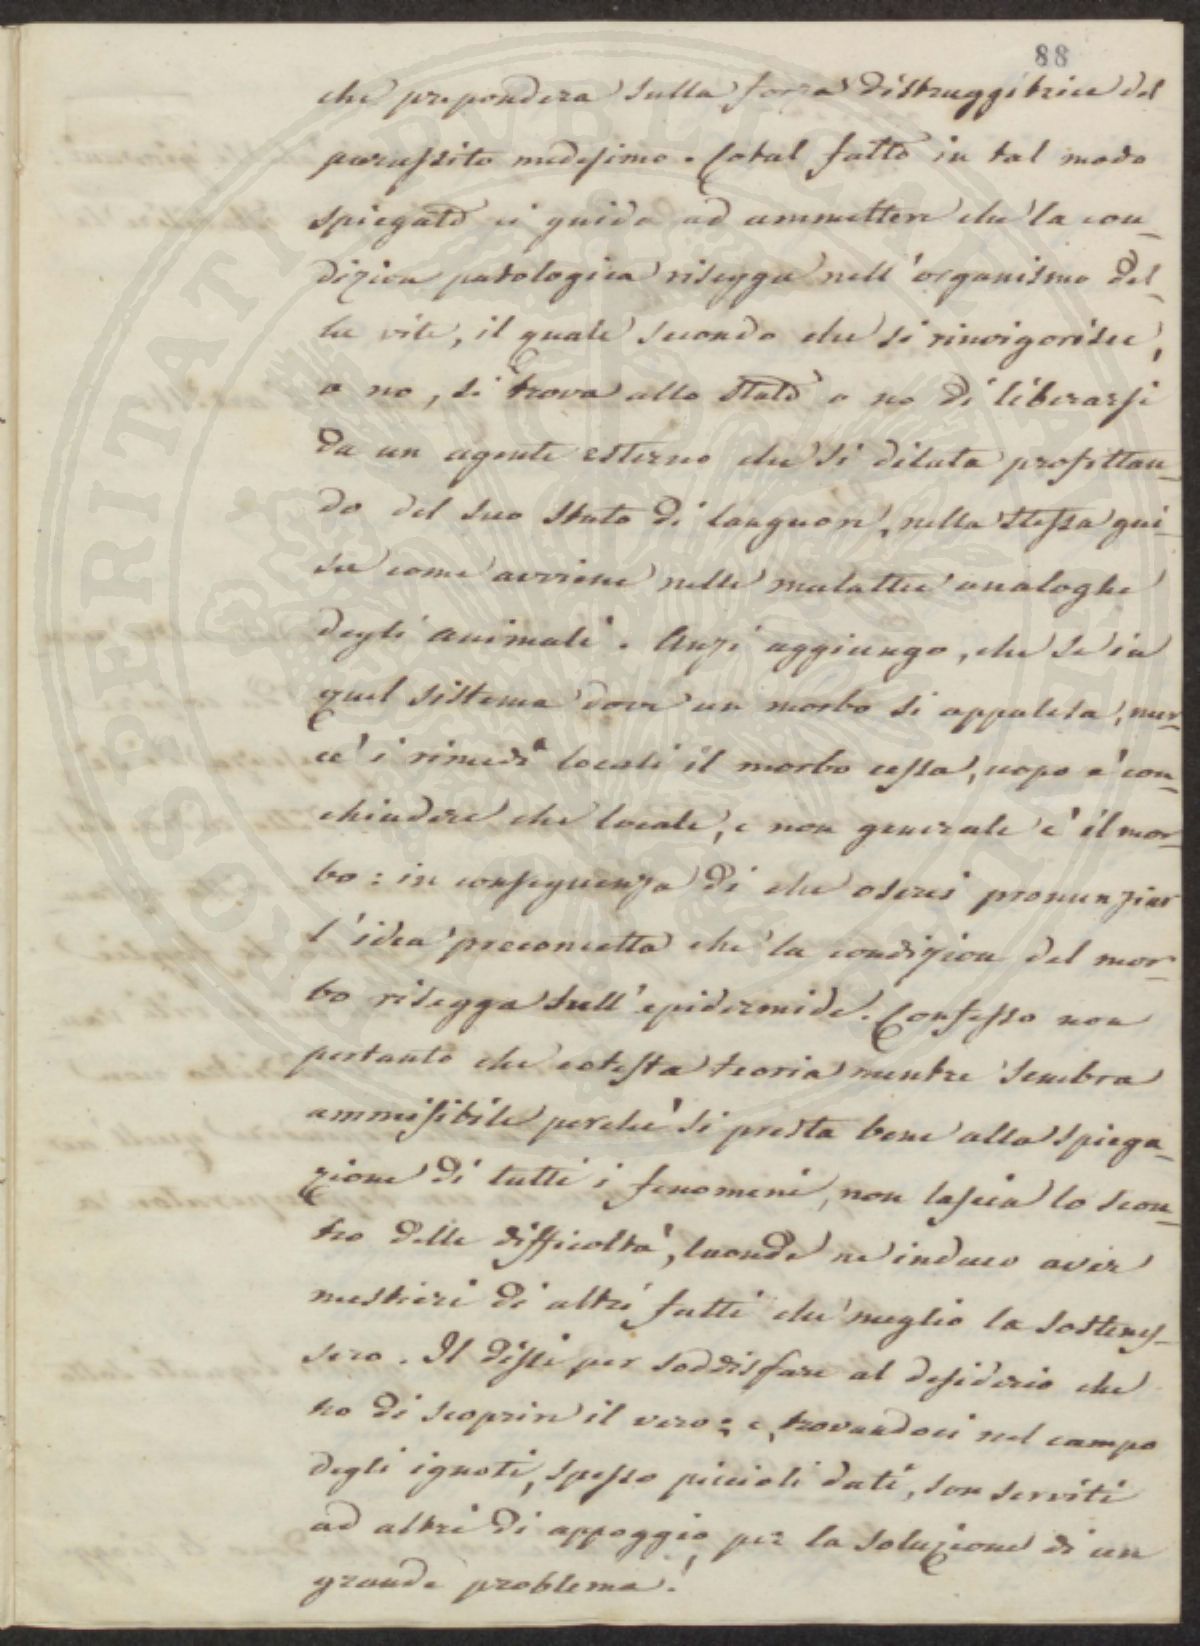 88
che prepondera sulla forza distruggitrice del
parassito medesimo. Cotal fatto in tal modo
spiegato ci guida ad ammettere che la con_
dizion patologica risegga nell'organismo del_
la vite, il quale secondo che si rinvigorisce,
o no, si trova allo stato o no di liberarsi
da un agente esterno che si dilata profittan_
do del suo stato di languore, nella stessa gui_
sa come avviene nelle malattie analoghe
degli animali. Anzi aggiungo, che se in
quel sistema dove un morbo si appalesa, mer_
cè i rimedi locali il morbo cessa, uopo è con_
chiudere che locale, e non generale è il mor_
bo: in conseguenza di che oserei pronunziar
l'idea preconcetta che la condizion del mor_
bo risegga sull'epidermide. Confesso non
pertanto che cotesta teoria mentre sembra
ammisibile perchè si presta bene alla spiega_
zione di tutti i fenomeni, non lascia lo scon_
tro delle difficoltà, laonde ne induco aver
mestieri di altri fatti che meglio la sostenes_
sero. Il dissi per soddisfare al desiderio che
ho di scoprire il vero; e, trovandoci nel campo
degli ignoti, spesso piccioli dati, son serviti
ad altri di appoggio per la soluzione di un
grande problema!
PROSPERITATI PUBLICAE AUGENDAE